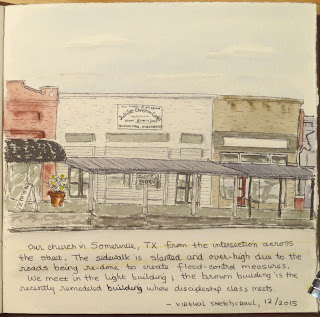 Our church in Somerville, TX from the intersection across
the street. The sidewalk is slanted and over-high due to the
roads being re-done to create flood-control measures.
We meet in the light building; the brown building is the
recently remodeled building where discipleship class meets.
- virtual sketchcrawl, 12/2015